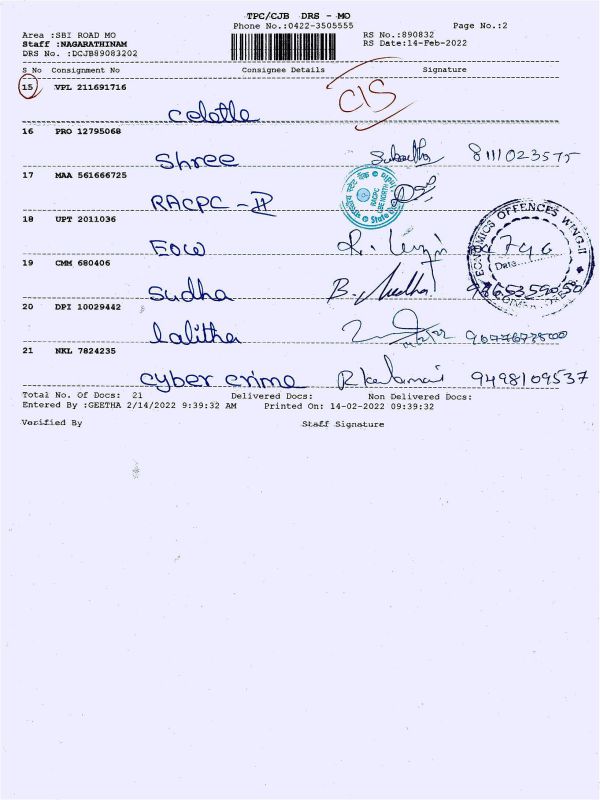 TPC/CJB DRS - MO
Phone No.:0422-3505555 Page No.:2
Area :SBI ROAD MO RS No.:890832
Staff :NAGARATHINAM RS Date:14-Feb-2022
DRS No. :DCJB89083202
S No Consignment No Consignee Details Signature
15 VPL 211691716
CIS
16 PRO 12795068
Shree 8111023575
17 MAA 561666725
RACPC - II
18 UPT 2011036
EOW
ECONOMICS OFFENCES WING-II
Date
19 CMM 680406
Sudha B. Sudha
20 DPI 10029442
lalitha
21 NKL 7824235
cyber crime 9498109537
Total No. Of Docs: 21 Delivered Docs: Non Delivered Docs:
Entered By :GEETHA 2/14/2022 9:39:32 AM Printed On: 14-02-2022 09:39:32
Verified By Staff Signature